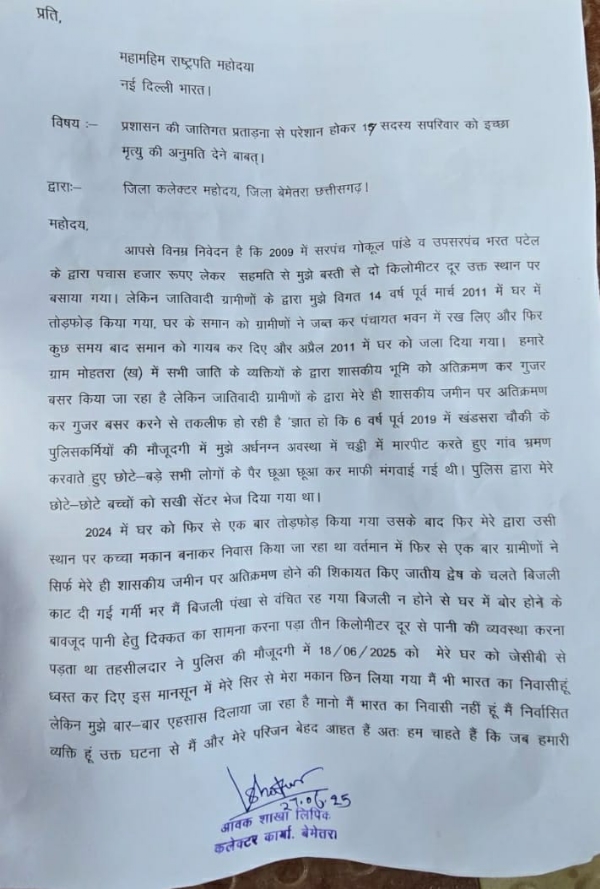 प्रति,
महामहिम राष्ट्रपति महोदया
नई दिल्ली भारत।
विषय :– प्रशासन की जातिगत प्रताड़ना से परेशान होकर 17 सदस्य सपरिवार को इच्छा
मृत्यु की अनुमति देने बाबत्।
द्वाराः– जिला कलेक्टर महोदय, जिला बेमेतरा छत्तीसगढ़।
महोदय,
आपसे विनम्र निवेदन है कि 2009 में सरपंच गोकूल पांडे व उपसरपंच भरत पटेल
के द्वारा पचास हजार रूपए लेकर सहमति से मुझे बस्ती से दो किलोमीटर दूर उक्त स्थान पर
बसाया गया। लेकिन जातिवादी ग्रामीणों के द्वारा मुझे विगत 14 वर्ष पूर्व मार्च 2011 में घर में
तोड़फोड़ किया गया, घर के समान को ग्रामीणों ने जब्त कर पंचायत भवन में रख लिए और फिर
कुछ समय बाद समान को गायब कर दिए और अप्रैल 2011 में घर को जला दिया गया। हमारे
ग्राम मोहतरा (ख) में सभी जाति के व्यक्तियों के द्वारा शासकीय भूमि को अतिक्रमण कर गुजर
बसर किया जा रहा है लेकिन जातिवादी ग्रामीणों के द्वारा मेरे ही शासकीय जमीन पर अतिक्रमण
कर गुजर बसर करने से तकलीफ हो रही है ॅज्ञात हो कि 6 वर्ष पूर्व 2019 में खंडसरा चौकी के
पुलिसकर्मियों की मौजूदगी में मुझे अर्धनग्न अवस्था में चड्डी में मारपीट करते हुए गांव भ्रमण
करवाते हुए छोटे–बड़े सभी लोगों के पैर छूआ छूआ कर माफी मंगवाई गई थी। पुलिस द्वारा मेरे
छोटे–छोटे बच्चों को सखी सेंटर भेज दिया गया था।
2024 में घर को फिर से एक बार तोड़फोड़ किया गया उसके बाद फिर मेरे द्वारा उसी
स्थान पर कच्चा मकान बनाकर निवास किया जा रहा था वर्तमान में फिर से एक बार ग्रामीणों ने
सिर्फ मेरे ही शासकीय जमीन पर अतिक्रमण होने की शिकायत किए जातीय द्वेष के चलते बिजली
काट दी गई गर्मी भर मैं बिजली पंखा से वंचित रह गया बिजली न होने से घर में बोर होने के
बावजूद पानी हेतु दिक्कत का सामना करना पड़ा तीन किलोमीटर दूर से पानी की व्यवस्था करना
पड़ता था तहसीलदार ने पुलिस की मौजूदगी में 18/06/2025 को मेरे घर को जेसीबी से
ध्वस्त कर दिए इस मानसून में मेरे सिर से मेरा मकान छिन लिया गया मैं भी भारत का निवासीहूं
लेकिन मुझे बार–बार एहसास दिलाया जा रहा है मानो मैं भारत का निवासी नहीं हूं मैं निर्वासित
व्यक्ति हूं उक्त घटना से मैं और मेरे परिजन बेहद आहत हैं अतः हम चाहते हैं कि जब हमारी
27.06.25
आवक शाखा लिपिक
कलेक्टर कार्या. बेमेतरा